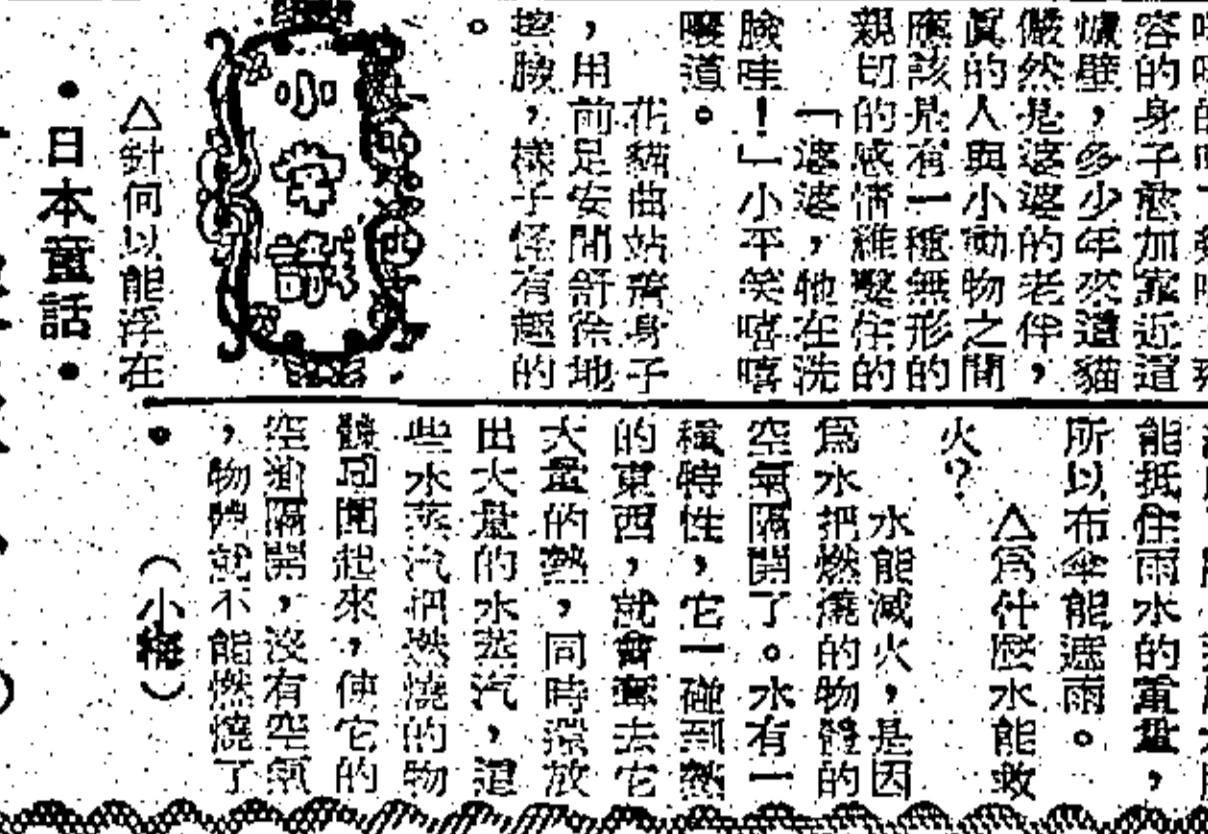 容的身子愈加靠近這
爐壁，多少年來這貓
儼然是婆婆的老伴，
眞的人與小動物之間
應該是有一種無形的
親切的感情維繫住的
「婆婆，牠在洗
臉哇！」小平笑嘻嘻
嚷道。
花貓曲站着身子
，用前足安閒舒徐地
擦臉，樣子怪有趣的
。
小常識
△針何以能浮在
•日本童話•
能抵住雨水的重量，
所以布傘能遮雨。
△爲什麼水能救
火？
水能滅火，是因
爲水把燃燒的物體的
空氣隔開了。水有一
種特性，它一碰到熱
的東西，就會奪去它
大量的熱，同時還放
出大量的水蒸汽，這
些水蒸汽把燃燒的物
體周圍起來，使它的
空氣隔開，沒有空氣
，物體就不能燃燒了
。
（小梅）